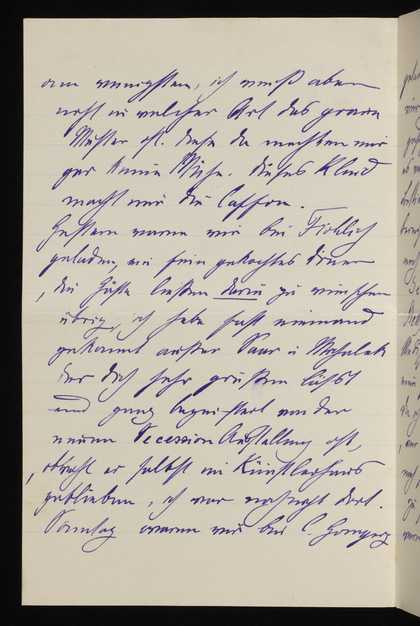 am wenigsten, ich muß aber
noch in welcher Art das graue
Muster ist.
gar keine Mühe. Dieses Kleid
macht mir die Caffon.
Gestern waren wir bei Fröhlich
geladen, ein fein gekochtes Diner
, die Gäste ließen darin zu wünschen
übrig, ich habe fast niemand
gekannt außer Saar u Michalek
der Dich sehr grüßen läßt
und ganz begeistert von der
neuen Secession Ausstellung ist,
, obwohl er selbst im Künstlerhaus
geblieben, ich war noch nicht dort.
Sonntag waren wir bei C. Gomperz